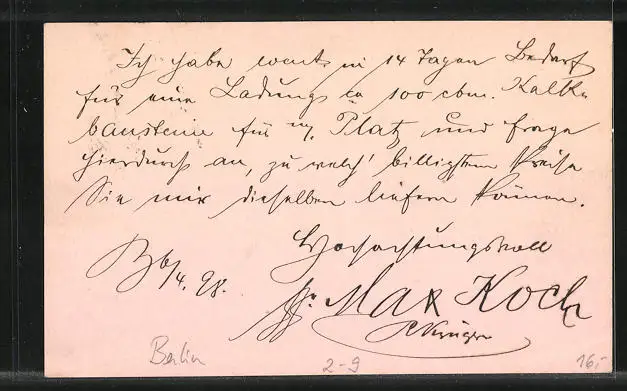 Ich habe event. in 14 Tagen Bedarf
für eine Ladung ca 100 cbm. Kalk-
bausteine für m. Platz und frage
hierdurch an, zu welch' billigstem Preise
Sie mir dieselben liefern können.
Hochachtungsvoll
B 6/4. 98.
Max Koch
Krüger
Berlin
2-9
16,-